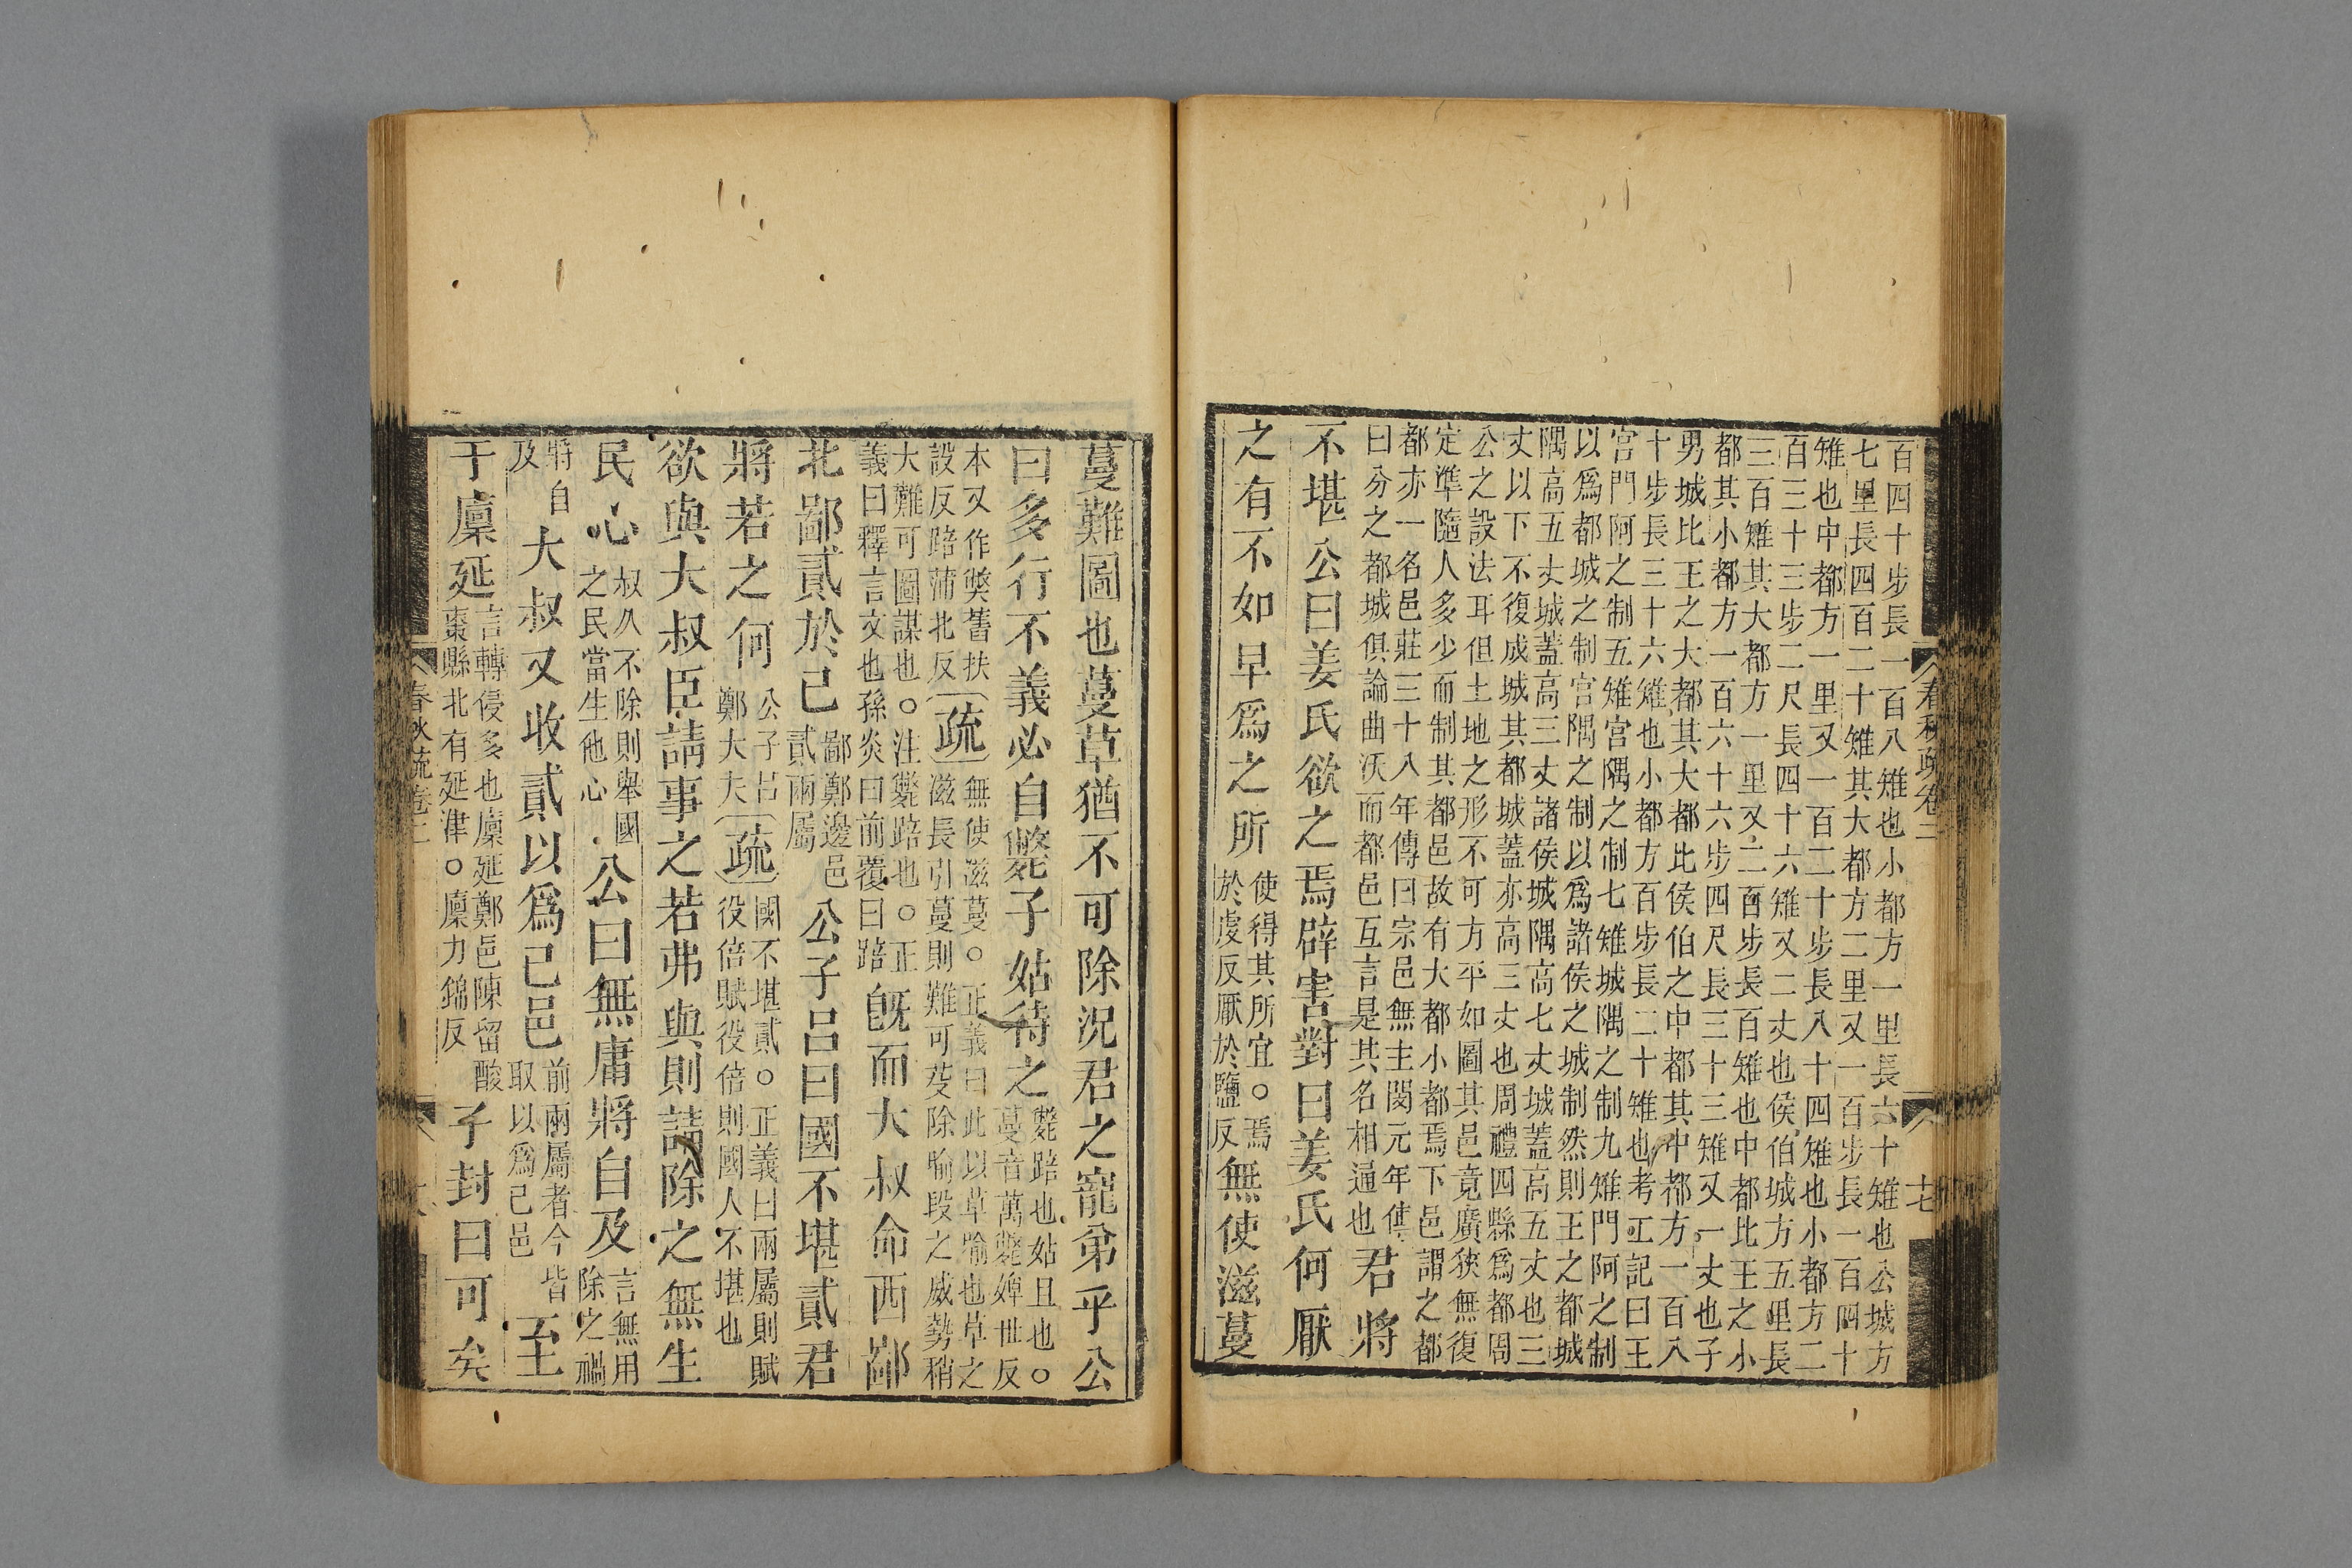 春秋疏卷二
十七
百四十步長一百八雉也小都方一里長六十雉也公城方
七里長四百二十雉其大都方二里又一百步長一百四十
雉也中都方一里又一百二十步長八十四雉也小都方二
百三十三步二尺長四十六雉又二丈也侯伯城方五里長
三百雉其大都方一里又二百步長百雉也中都比王之小
都其小都方一百六十六步四尺長三十三雉又一丈也子
男城比王之大都其大都比侯伯之中都其中都方一百八
十步長三十六雉也小都方百步長二十雉也考工記曰王
宮門阿之制五雉宮隅之制七雉城隅之制九雉門阿之制
以爲都城之制宮隅之制以爲諸侯之城制然則王之都城
隅高五丈城蓋高三丈諸侯城隅高七丈城蓋高五丈也三
丈以下不復成城其都城蓋亦高三丈也周禮四縣爲都周
公之設法耳但土地之形不可方平如圖其邑竟廣狹無復
定準隨人多少而制其都邑故有大都小都焉下邑謂之都
都亦一名邑莊三十八年傳曰宗邑無主閔元年傳
曰分之都城俱論曲沃而都邑互言是其名相通也
君將
不堪公曰姜氏欲之焉辟害對曰姜氏何厭
之有不如早爲之所
使得其所宜○焉
於虔反厭於鹽反
無使滋蔓
蔓難圖也蔓草猶不可除況君之寵弟乎公
曰多行不義必自斃子姑待之
斃踣也姑且也○
蔓音萬斃婢世反
本又作獘舊扶
設反踣蒲北反
疏
無使滋蔓○正義曰此以草喻也草之
滋長引蔓則難可芟除喻段之威勢稍
大難可圖謀也○注斃踣也○正
義曰釋言文也孫炎曰前覆曰踣
既而大叔命西鄙
北鄙貳於己
鄙鄭邊邑
貳兩屬
公子呂曰國不堪貳君
將若之何
公子呂
鄭大夫
疏
國不堪貳○正義曰兩屬則賦
役倍賦役倍則國人不堪也
欲與大叔臣請事之若弗與則請除之無生
民心
叔久不除則舉國
之民當生他心
公曰無庸將自及
言無用
除之禍
將自
及
大叔又收貳以爲己邑
前兩屬者今皆
取以爲己邑
至
于廩延
言轉侵多也廩延鄭邑陳留酸
棗縣北有延津○廩力錦反
子封曰可矣
春秋疏卷二